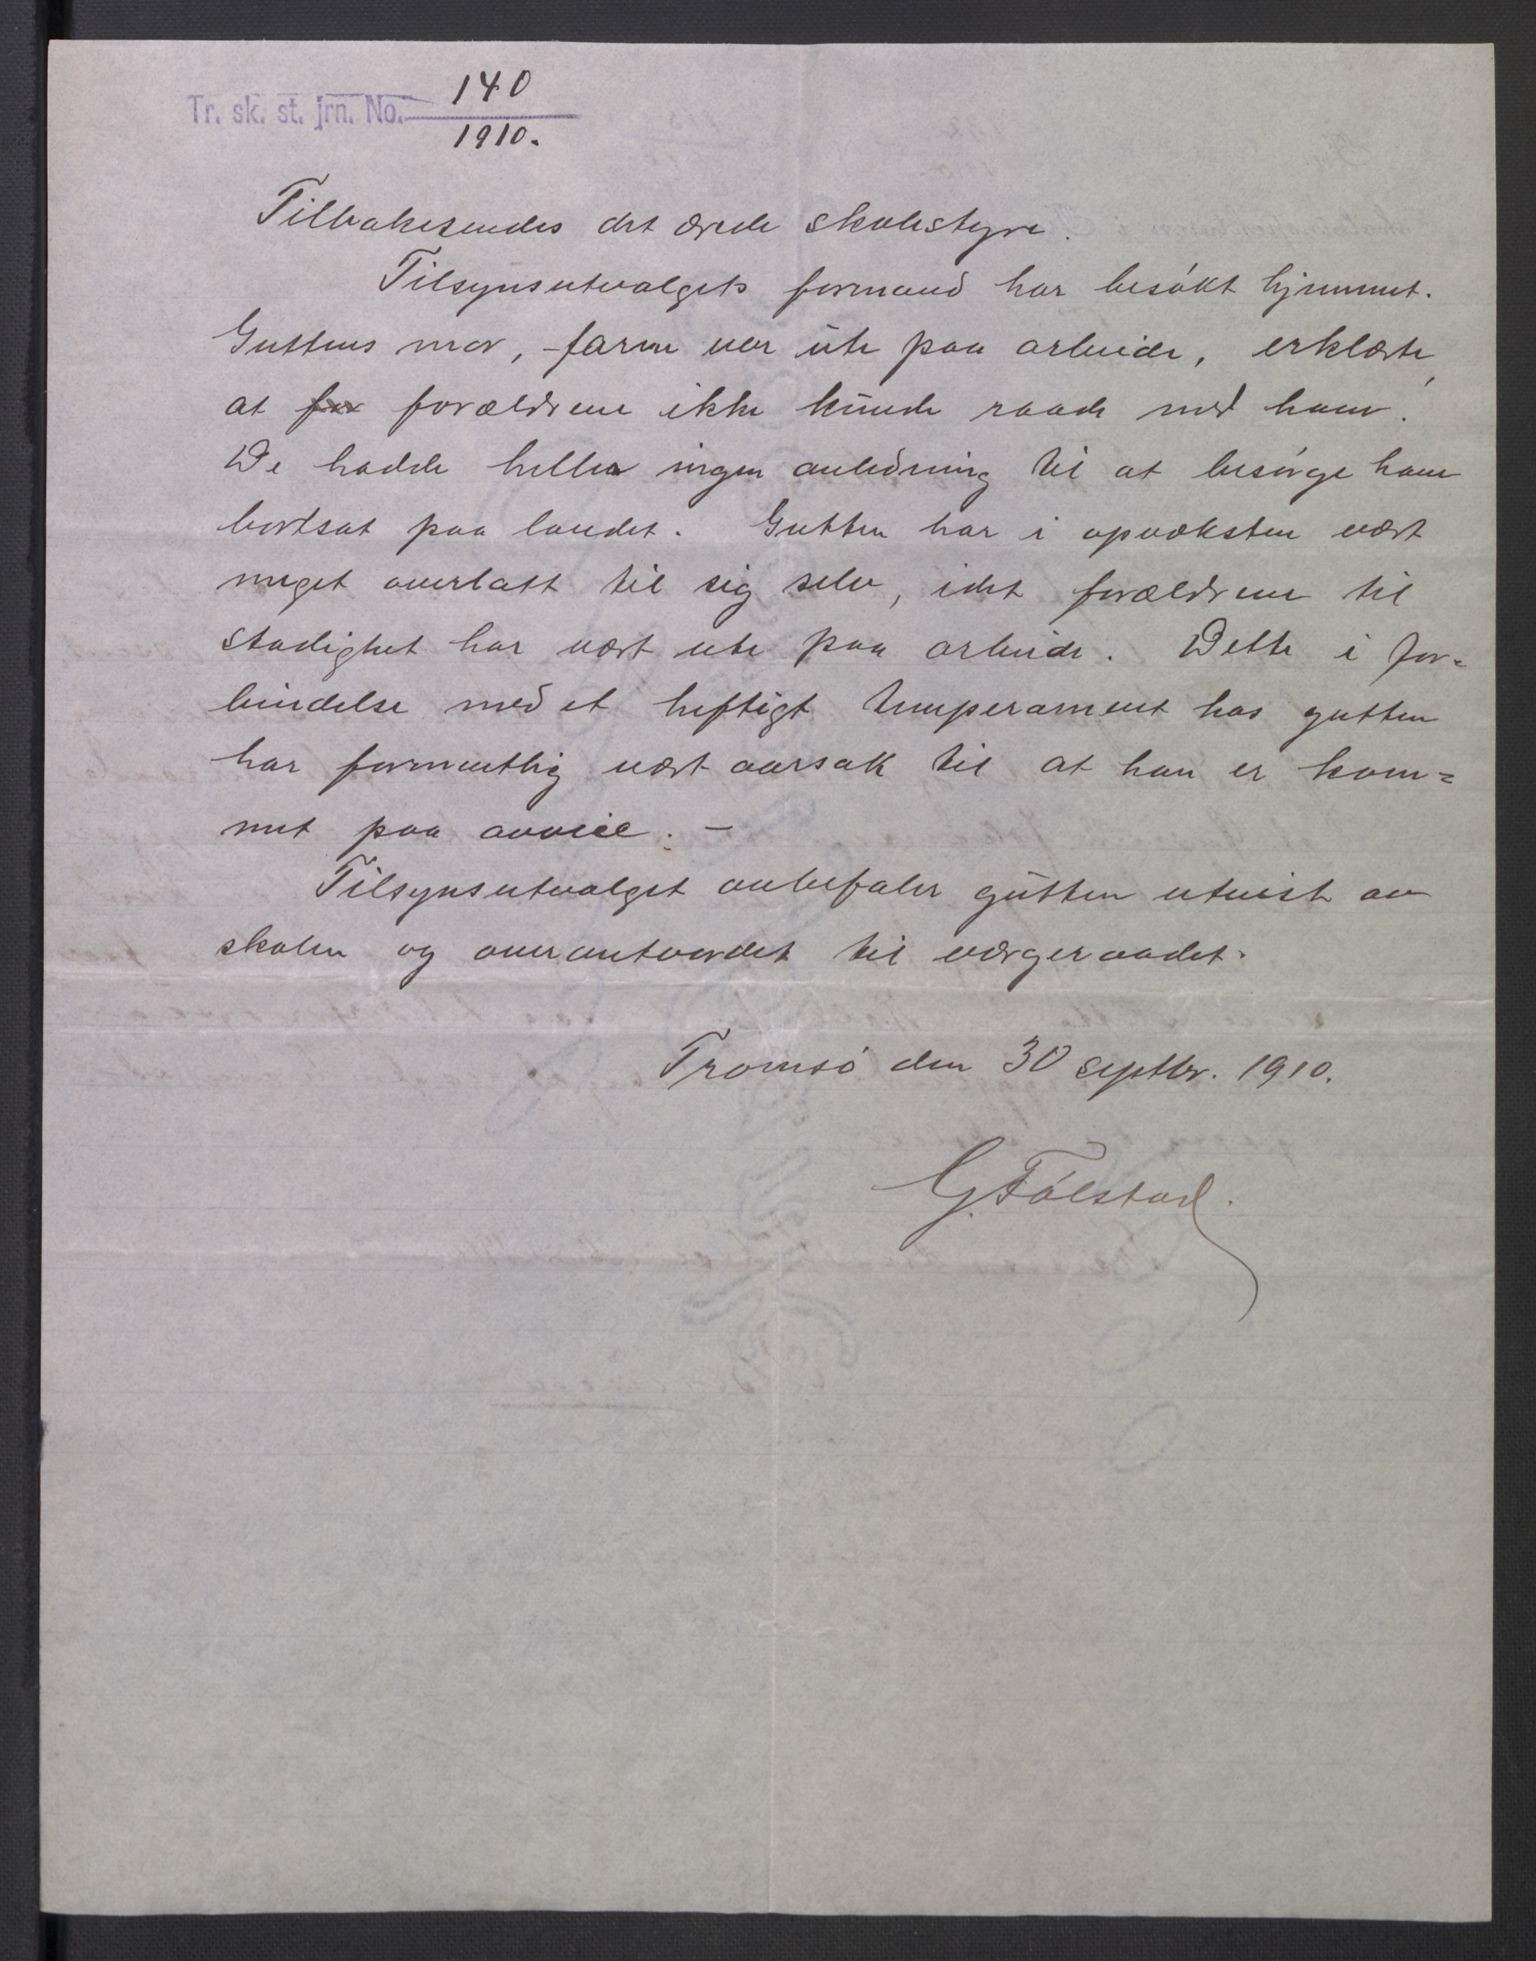 Tr. sk. st. jrn. No. 140
1910.
Tilbakesendes det ærede skolestyre.
Tilsynsutvalgets formand har besøkt hjemmet.
Guttens mor, - faren var ute paa arbeide, erklærte,
at for forældrene ikke kunde raade med ham.
De hadde heller ingen anledning til at besørge ham
bortsat paa landet. Gutten har i opvæksten vært
meget overlatt til sig selv, idet forældrene til
stadighet har vært ute paa arbeide. Dette i for=
bindelse med et heftigt temperament hos gutten
har formentlig vært aarsak til at han er kom=
met paa avveie. -
Tilsynsutvalget anbefaler gutten utvist av
skolen og overantvordet til værgeraadet.
Tromsø den 30 septbr. 1910.
G. Følstad.